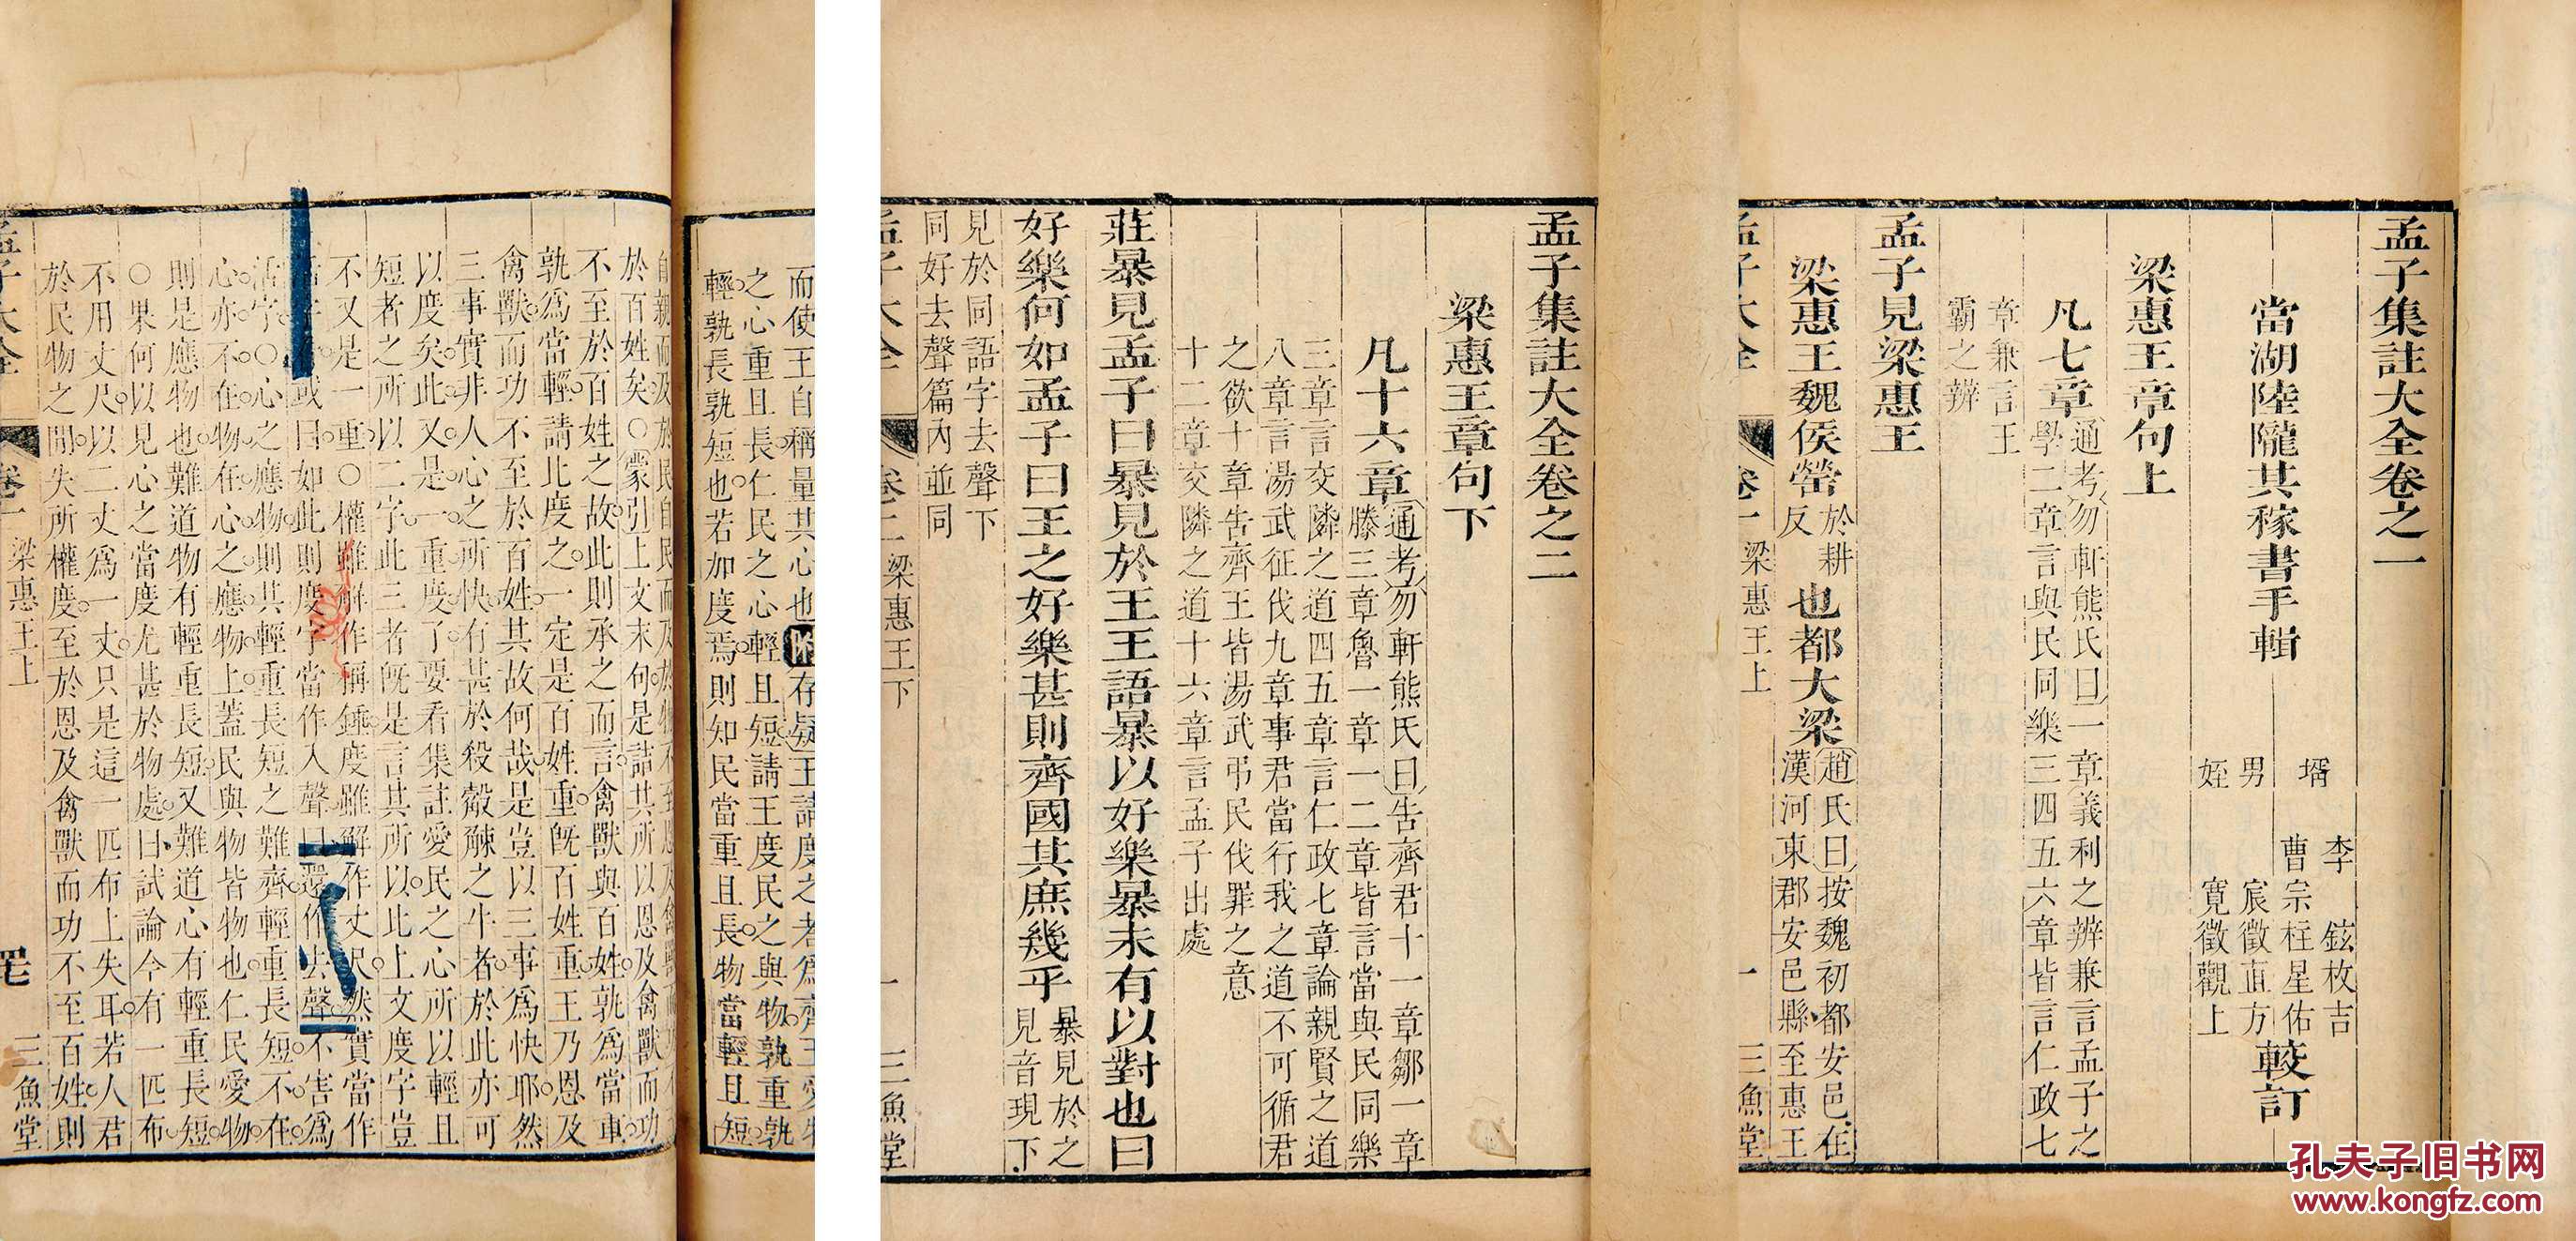 孟子集註大全卷之一
當湖陸隴其稼書手輯
壻 李鉉枚吉
曹宗柱星佑
男 宸徵直方
姪 寬徵觀上
較訂
梁惠王章句上
凡七章
通考勿軒熊氏曰一章義利之辨兼言孟子之
學二章言與民同樂三四五六章皆言仁政七
章兼言王
霸之辨
孟子見梁惠王
梁惠王魏侯罃
於耕
反
也都大梁
趙氏曰按魏初都安邑在
漢河東郡安邑縣至惠王
孟子大全
卷一
梁惠王上
一
三魚堂
孟子集註大全卷之二
梁惠王章句下
凡十六章
通考勿軒熊氏曰告齊君十一章鄒一章
滕三章魯一章一二章皆言當與民同樂
三章言交隣之道四五章言仁政七章論親賢之道
八章言湯武征伐九章事君當行我之道不可循君
之欲十章告齊王皆湯武弔民伐罪之意
十二章交隣之道十六章言孟子出處
莊暴見孟子曰暴見於王王語暴以好樂暴未有以對也曰
好樂何如孟子曰王之好樂甚則齊國其庶幾乎
暴見於之
見音現下
見於同語字去聲下
同好去聲篇內並同
孟子大全
卷二
梁惠王下
一
三魚堂
而使王自稱量其心也附存疑王請度之者爲齊王愛物
之心重且長仁民之心輕且短請王度民之與物孰重孰
輕孰長孰短也若加度焉則知民當重且長物當輕且短
於百姓矣○蒙引上文末句是詰其所以恩及禽獸而功
不至於百姓之故此則承之而言禽獸與百姓孰爲當重
孰爲當輕請比度之一定是百姓重旣百姓重王乃恩及
禽獸而功不至於百姓其故何哉是豈以三事爲快耶然
三事實非人心之所快有甚於殺觳觫之牛者於此亦可
以度矣此又是一重度了要看集註愛民之心所以輕且
短者之所以二字此三者旣是言其所以此上文度字豈
不又是一重○權雖解作稱錘度雖解作丈尺然實當作
或曰如此則度字當作入聲曰還作去聲不害爲
活字○心之應物則其輕重長短之難齊輕重長短不在
心亦不在物在心之應物上蓋民與物皆物也仁民愛物
則是應物也難道物有輕重長短又難道心有輕重長短
○果何以見心之當度尤甚於物處曰試論今有一匹布
不用丈尺以二丈爲一丈只是這一匹布上失耳若人君
於民物之間失所權度至於恩及禽獸而功不至百姓則
孟子大全
卷一
梁惠王上
三魚堂
孔夫子旧书网
www.kongfz.com